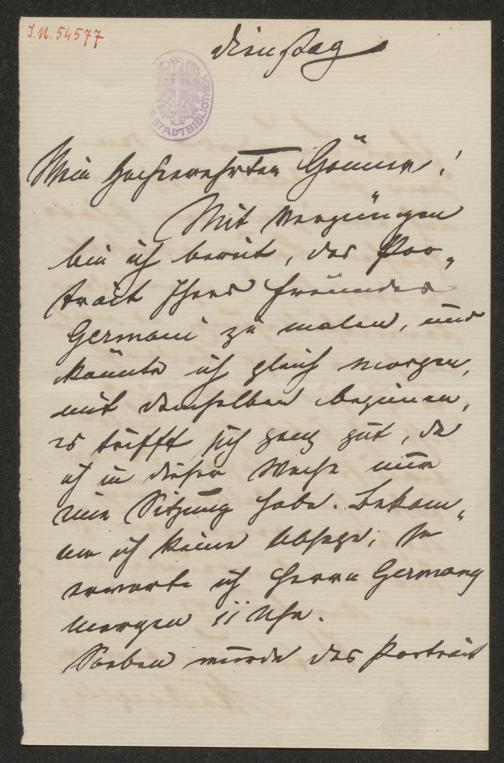 I.N. 54577
Dienstag
STADTBIBLIOTHEK
Mein hochverehrter Gönner!
Mit Vergnügen
bin ich bereit, das Por-
trait Ihres Freundes
Germani zu malen, und
könnte ich gleich morgen,
mit demselben beginnen,
es trifft sich ganz gut, da
ich in dieser Woche nur
eine Sitzung habe. Bekom-
me ich keine Absage, so
erwarte ich Herrn Germany
morgen 11 Uhr.
Soeben wurde das Portrait